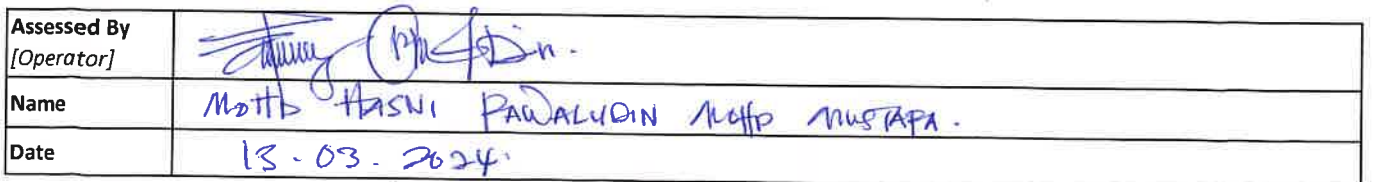 Assessed By
[Operator]
Name MOHD HASNI PAWALUDIN MOHD MUSTAPA.
Date 13.03.2024.